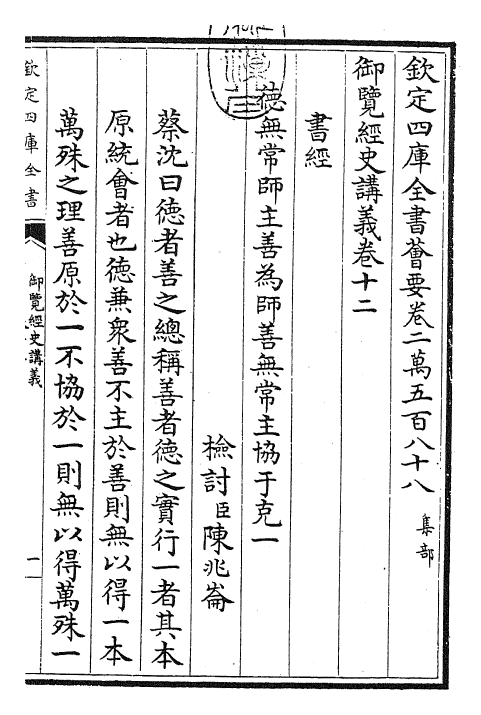 欽定四庫全書薈要卷二萬五百八十八　集部
御覽經史講義卷十二
書經
德無常師主善為師善無常主協于克一
檢討臣陳兆崙
蔡沈曰德者善之總稱善者德之實行一者其本
原統會者也德兼衆善不主於善則無以得一本
萬殊之理善原於一不協於一則無以得萬殊一
欽定四庫全書
御覽經史講義
一